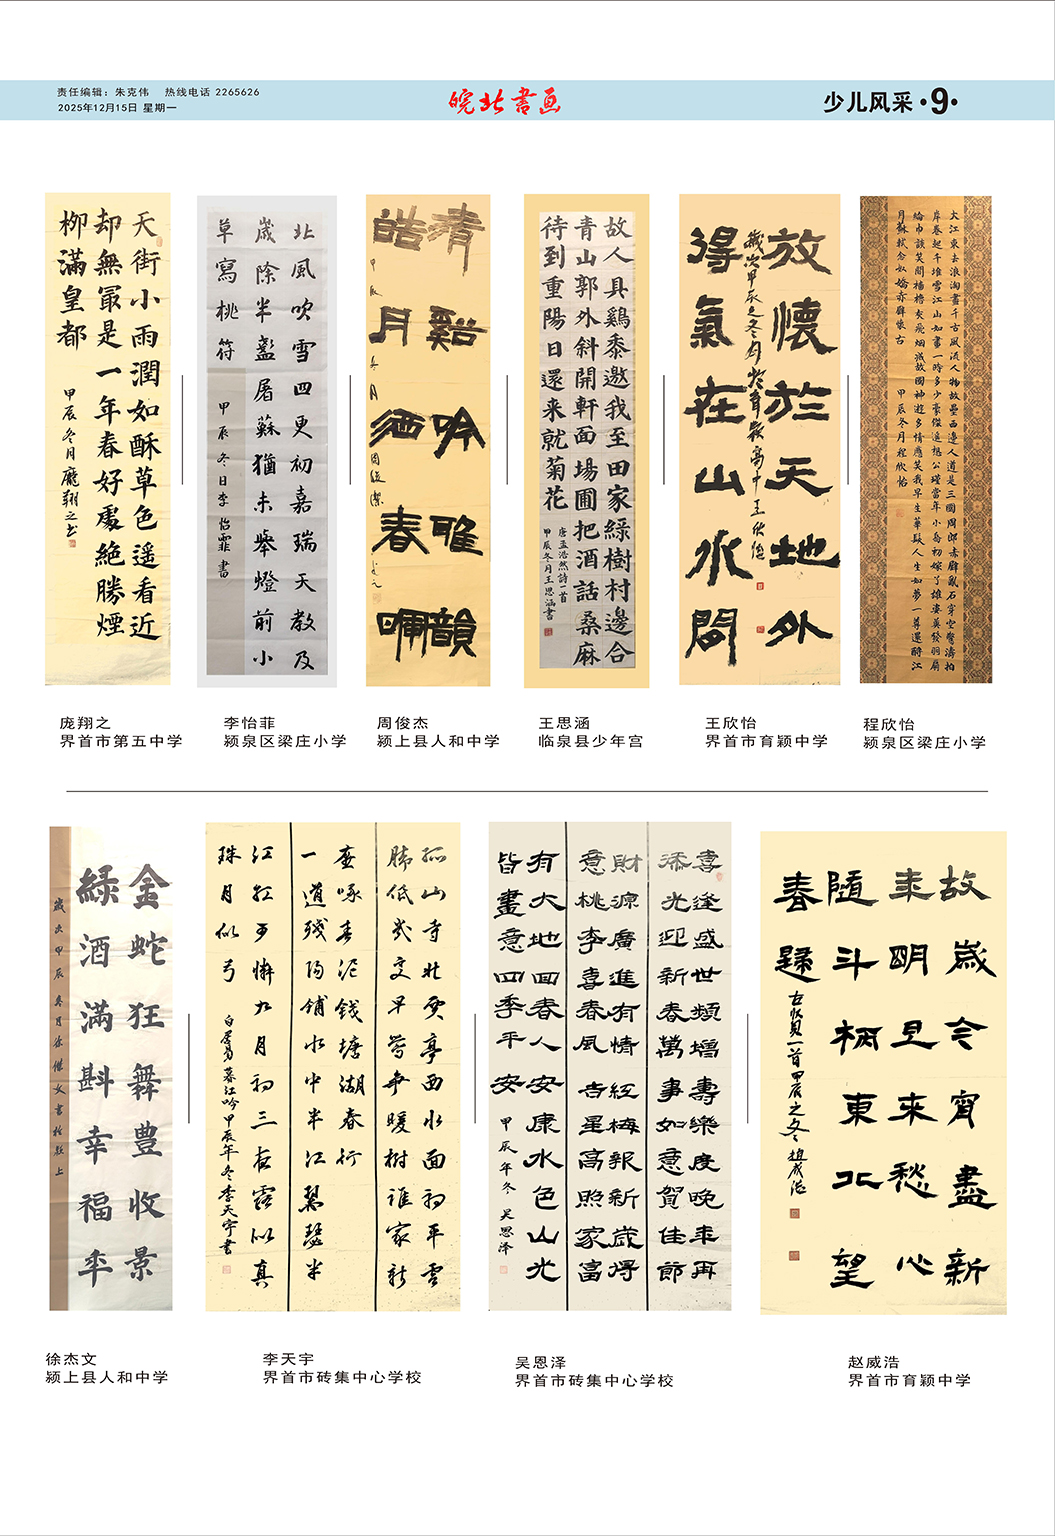 责任编辑：朱克伟　热线电话 2265626
2025年12月15日 星期一
皖北書画
少儿风采 ·9·
天街小雨潤如酥草色遥看近
却無冣是一年春好處絶勝煙
栁滿皇都
甲辰冬月龐翔之书
北風吹雪四更初嘉瑞天教及
歲除半盞屠蘇猶未舉燈前小
草寫桃符
甲辰冬日李怡霏書
青谿吟雅韻
皓月洒春
故人具鷄黍邀我至田家綠樹村邊合
青山郭外斜開軒面場圃把酒話桑麻
待到重陽日還来就菊花
唐孟浩然詩一首
甲辰冬月王思涵書
放懷於天地外
得氣在山水間
歲次甲辰之冬月於育穎高中王欣怡
大江東去浪淘盡千古風流人物故壘西邊人道是三國周郎赤壁亂石穿空驚濤拍
岸卷起千堆雪江山如畫一時多少豪傑遥想公瑾當年小喬初嫁了雄姿英發羽扇
綸巾談笑間檣櫓灰飛烟滅故國神遊多情應笑我早生華髮人生如夢一尊還酹江
月蘇軾念奴嬌赤壁懷古
甲辰冬月程欣怡
庞翔之
界首市第五中学
李怡菲
颍泉区梁庄小学
周俊杰
颍上县人和中学
王思涵
临泉县少年宫
王欣怡
界首市育颖中学
程欣怡
颍泉区梁庄小学
金蛇狂舞豊收景
綠酒滿斟幸福年
孤山寺北賈亭西水面初平雲
脚低幾處早鶯爭暖樹誰家新
燕啄春泥錢塘湖春行
一道殘陽鋪水中半江瑟瑟半
江紅可憐九月初三夜露似真
珠月似弓
白居易暮江吟甲辰年冬李天宇書
喜逢盛世頻增壽樂度晚年再
添光迎新春萬事如意賀佳節
財源廣進有情紅梅報新歲得
意桃李喜春風吉星高照家富
有大地回春人安康水色山光
皆畫意四季平安
甲辰年冬吴恩泽
故歲今宵盡新
年明旦來愁心
隨斗柄東北望
春歸
甲辰之冬趙威浩
徐杰文
颍上县人和中学
李天宇
界首市砖集中心学校
吴恩泽
界首市砖集中心学校
赵威浩
界首市育颖中学